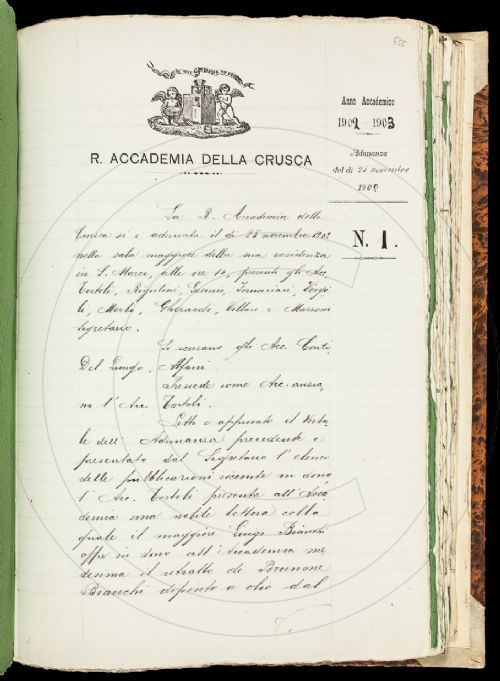 635
R. ACCADEMIA DELLA CRUSCA
Anno Accademico
1902 - 1903
Adunanza
del dì 25 novembre
1902
N. 1.
La R. Accademia della
Crusca si è adunata il dì 25 novembre 1902
nella sala maggiore della sua residenza
in S. Marco, alle ore 10, presenti gli Acc.
Tortoli, Rigutini, Fornaciari,
Gherardi, Villari e Mazzoni
Segretario.
Si scusano gli Acc. Conti,
Del Lungo, Alfani.
Presiede come Acc. anzia-
no l'Acc. Tortoli.
Letto e approvato il Verba-
le dell'Adunanza precedente e
presentato dal Segretario l'elenco
delle pubblicazioni ricevute in dono
l'Acc. Tortoli presenta all'Acca-
demia una nobile lettera colla
quale il maggiore Luigi Bianchi
offre in dono all'Accademia me
desima il ritratto di Brunone
Bianchi dipinto a olio dal